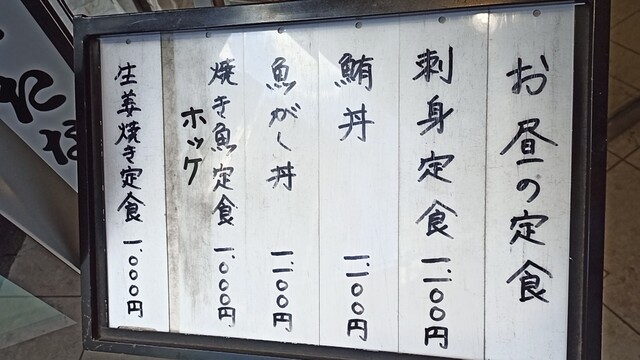 お昼の定食
刺身定食 一、一〇〇円
鮪丼 一、一〇〇円
魚がし丼 一、一〇〇円
焼き魚定食 一、〇〇〇円
ホッケ
生姜焼き定食 一、〇〇〇円